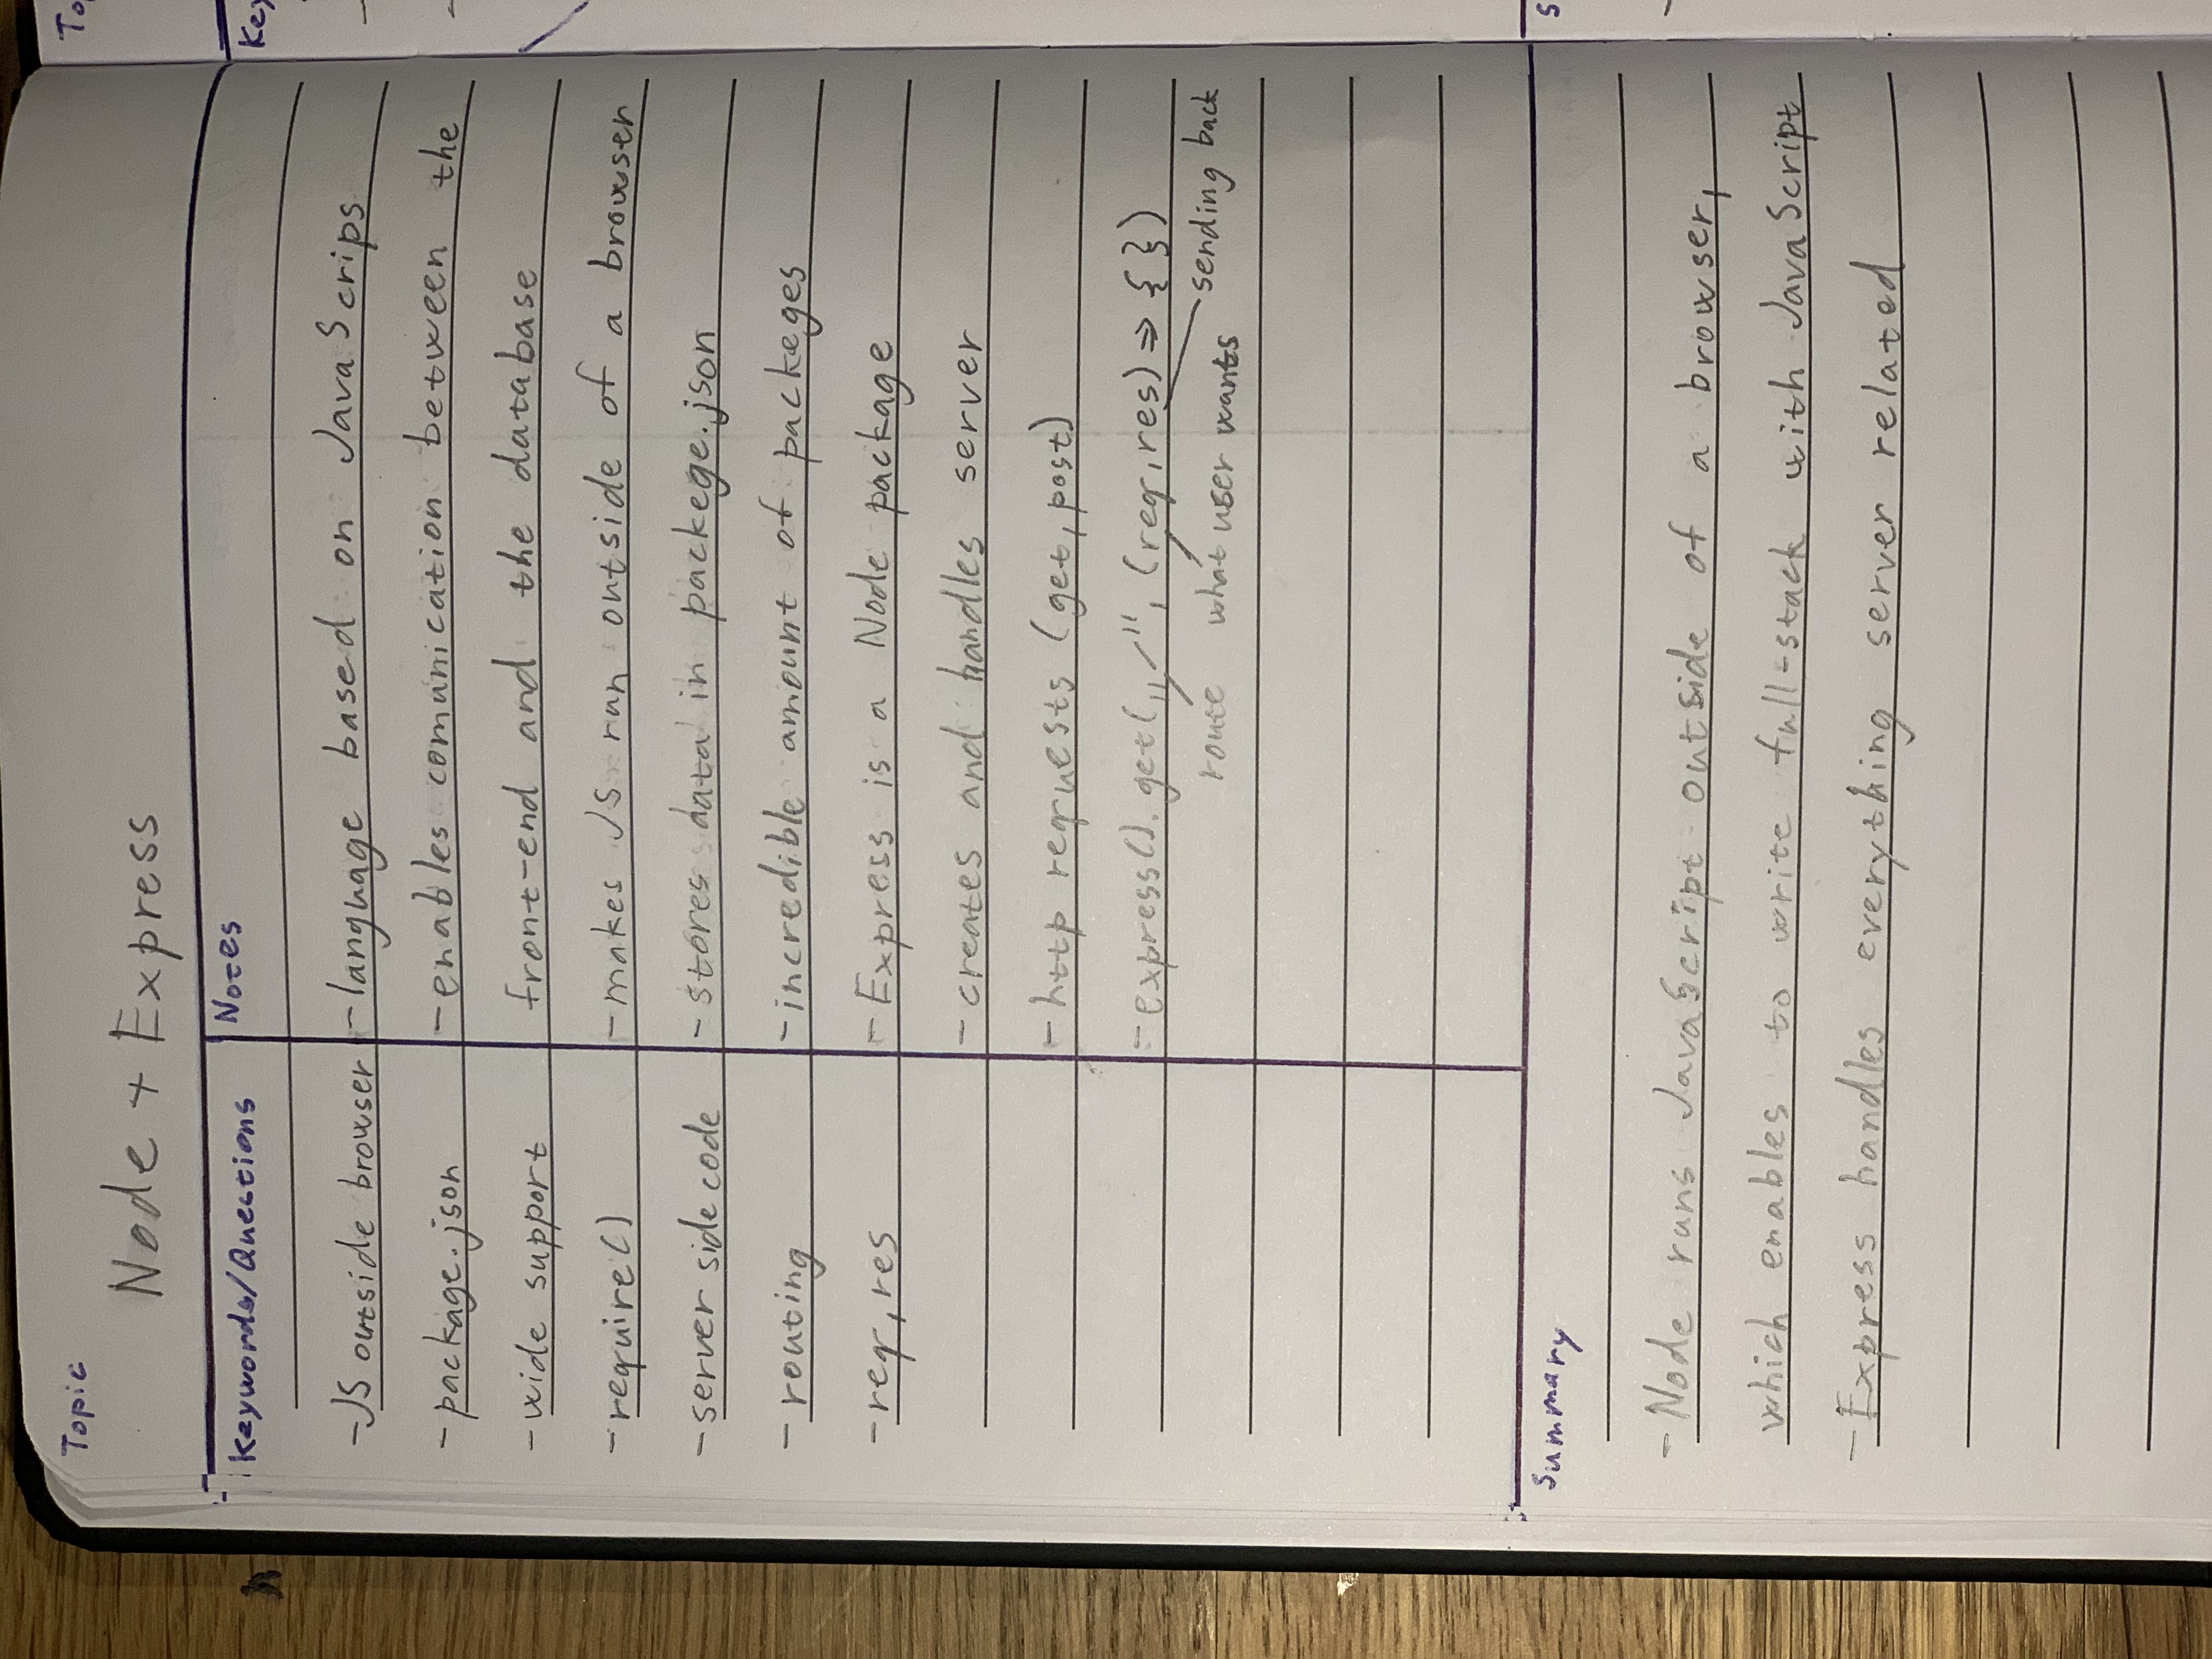 Topic
Node + Express
Keywords/Questions
-JS outside browser
-package.json
-wide support
-require()
-server side code
-routing
-req, res
Notes
-language based on JavaScrips
-enables comunication between the
front-end and the database
-makes JS run outside of a browser
-stores data in packege.json
-incredible amount of packeges
-Express is a Node package
-creates and handles server
-http requests (get, post)
-express().get(„/", (req, res) => { })
route what user wants sending back
Summary
-Node runs JavaScript outside of a browser,
which enables to write full-stack with JavaScript
-Express handles everything server related
To
Key
S